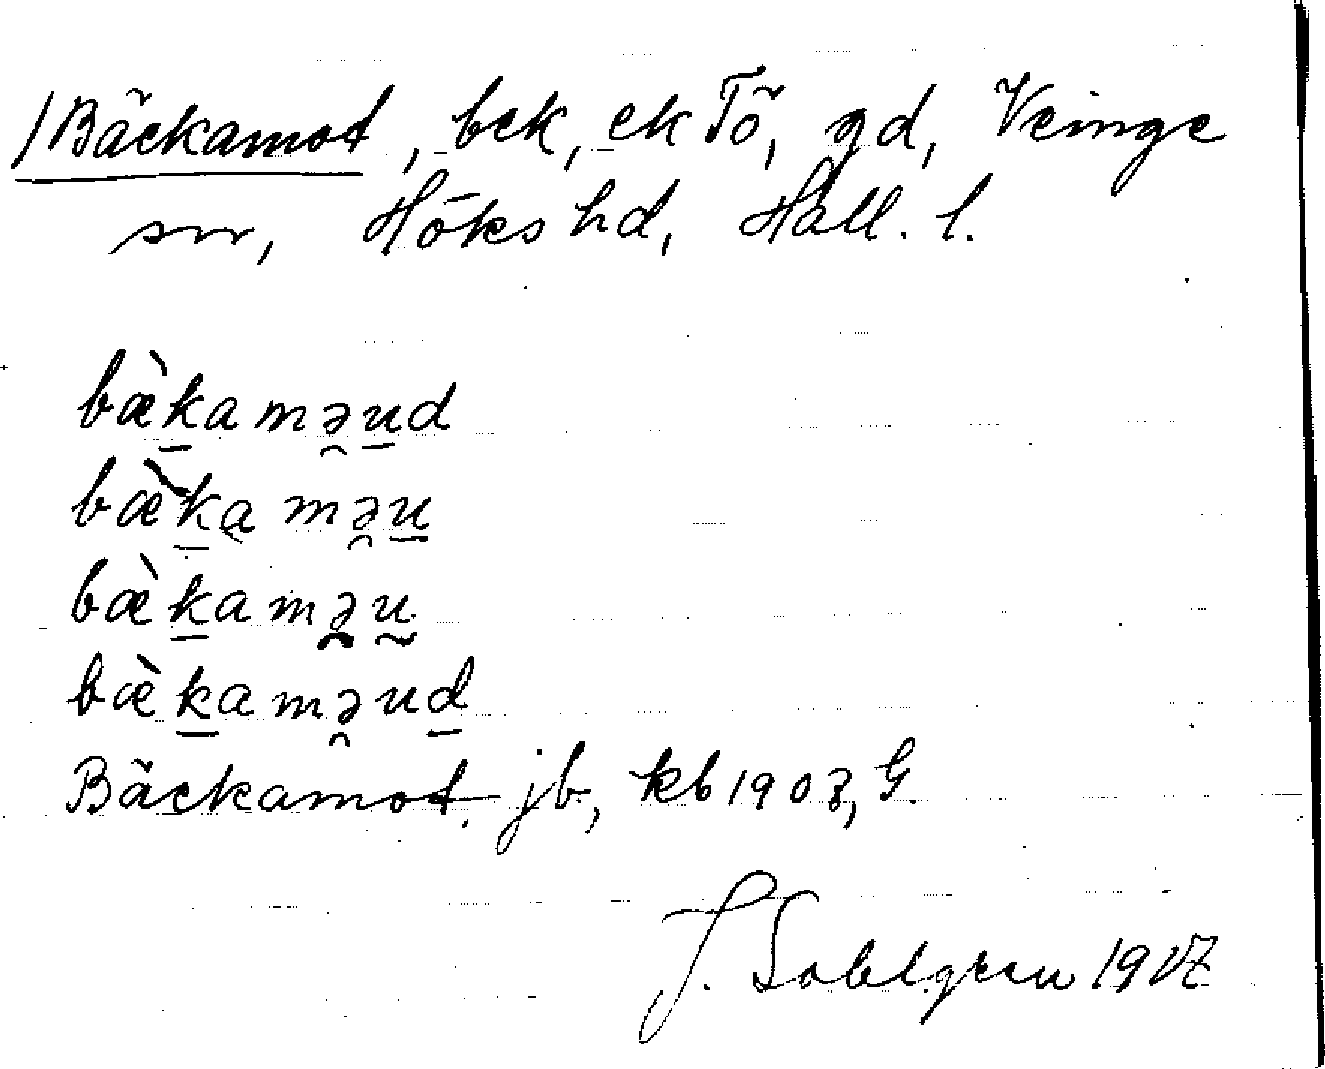 /Bäckamot, bek, ek Tö, gd, Veinge
sn, Höks hd, Hall. l.
bæ̀k̠amə̯u̠d
bæ̀k̠a̯ mə̯u̠
bæ̀k̠amə̯ṵ
bæ̀k̠amə̯ud̠
Bäckamot jb, kb 1903, G.
J. Sahlgren